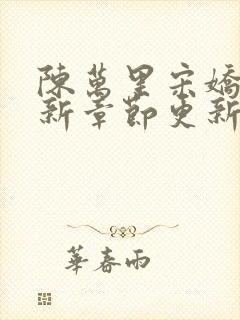 陳萬里宋嬌
新章節更新
華春雨